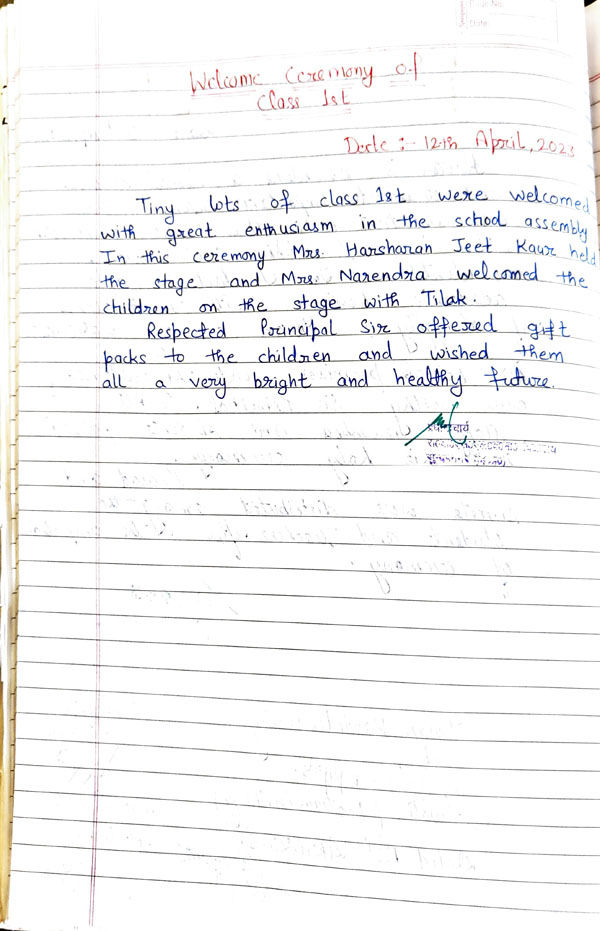 Page No.
Date:
Welcome Ceremony of
Class 1st
Date :- 12th April, 2023
Tiny tots of class 1st were welcomed
with great enthusiasm in the school assembly
In this ceremony Mrs. Harsharan Jeet Kaur held
the stage and Mrs. Narendra welcomed the
children on the stage with Tilak.
Respected Principal Sir offered gift
packs to the children and wished them
all a very bright and healthy future.
प्रधानाचार्य